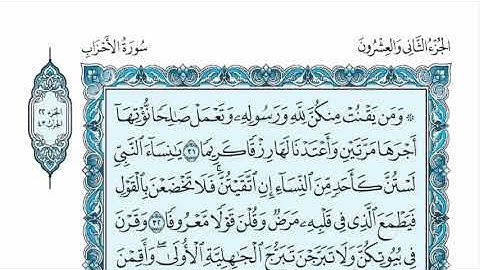 سُورَةُ الأَحْزَابِ
الجُزْءُ الثَّانِي وَالعِشْرُونَ
الجزء ٢٢
الحزب ٤٣
۞ وَمَن يَقْنُتْ مِنكُنَّ لِلَّهِ وَرَسُولِهِۦ وَتَعْمَلْ صَٰلِحًا نُّؤْتِهَآ
أَجْرَهَا مَرَّتَيْنِ وَأَعْتَدْنَا لَهَا رِزْقًا كَرِيمًا ٣١ يَٰنِسَآءَ ٱلنَّبِيِّ
لَسْتُنَّ كَأَحَدٍ مِّنَ ٱلنِّسَآءِ إِنِ ٱتَّقَيْتُنَّ فَلَا تَخْضَعْنَ بِٱلْقَوْلِ
فَيَطْمَعَ ٱلَّذِي فِي قَلْبِهِۦ مَرَضٌ وَقُلْنَ قَوْلًا مَّعْرُوفًا ٣٢ وَقَرْنَ
فِي بُيُوتِكُنَّ وَلَا تَبَرَّجْنَ تَبَرُّجَ ٱلْجَٰهِلِيَّةِ ٱلْأُولَىٰ وَأَقِمْنَ